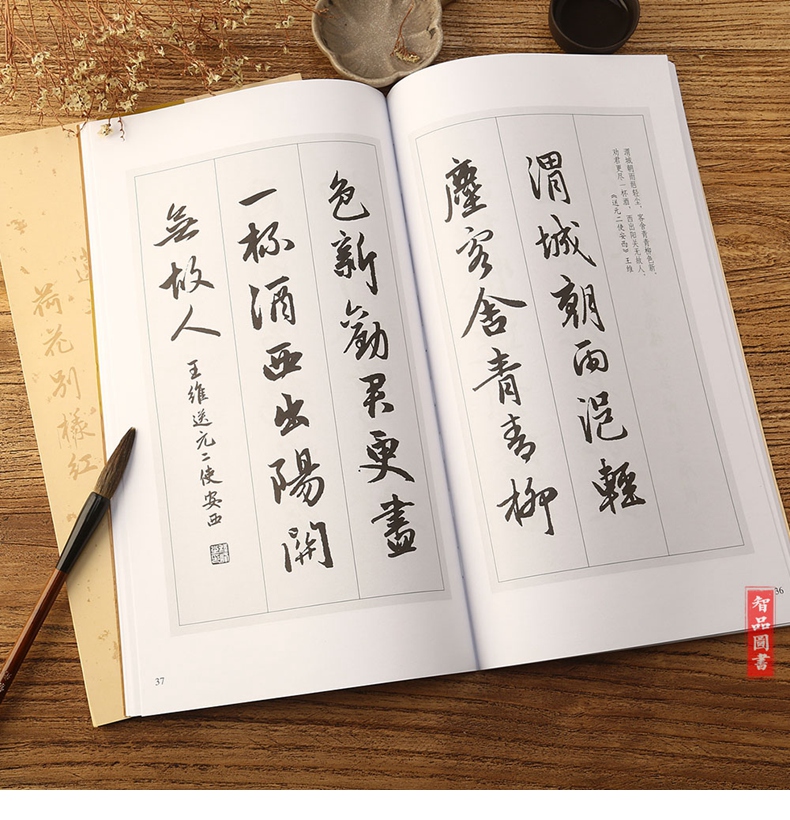 渭城朝雨浥轻尘，客舍青青柳色新。
劝君更尽一杯酒，西出阳关无故人。
《送元二使安西》王维
渭城朝雨浥輕
塵客舍青青柳
36
色新勸君更盡
一杯酒西出陽關
無故人
王維送元二使安西
37
荷花別樣紅
智品圖書